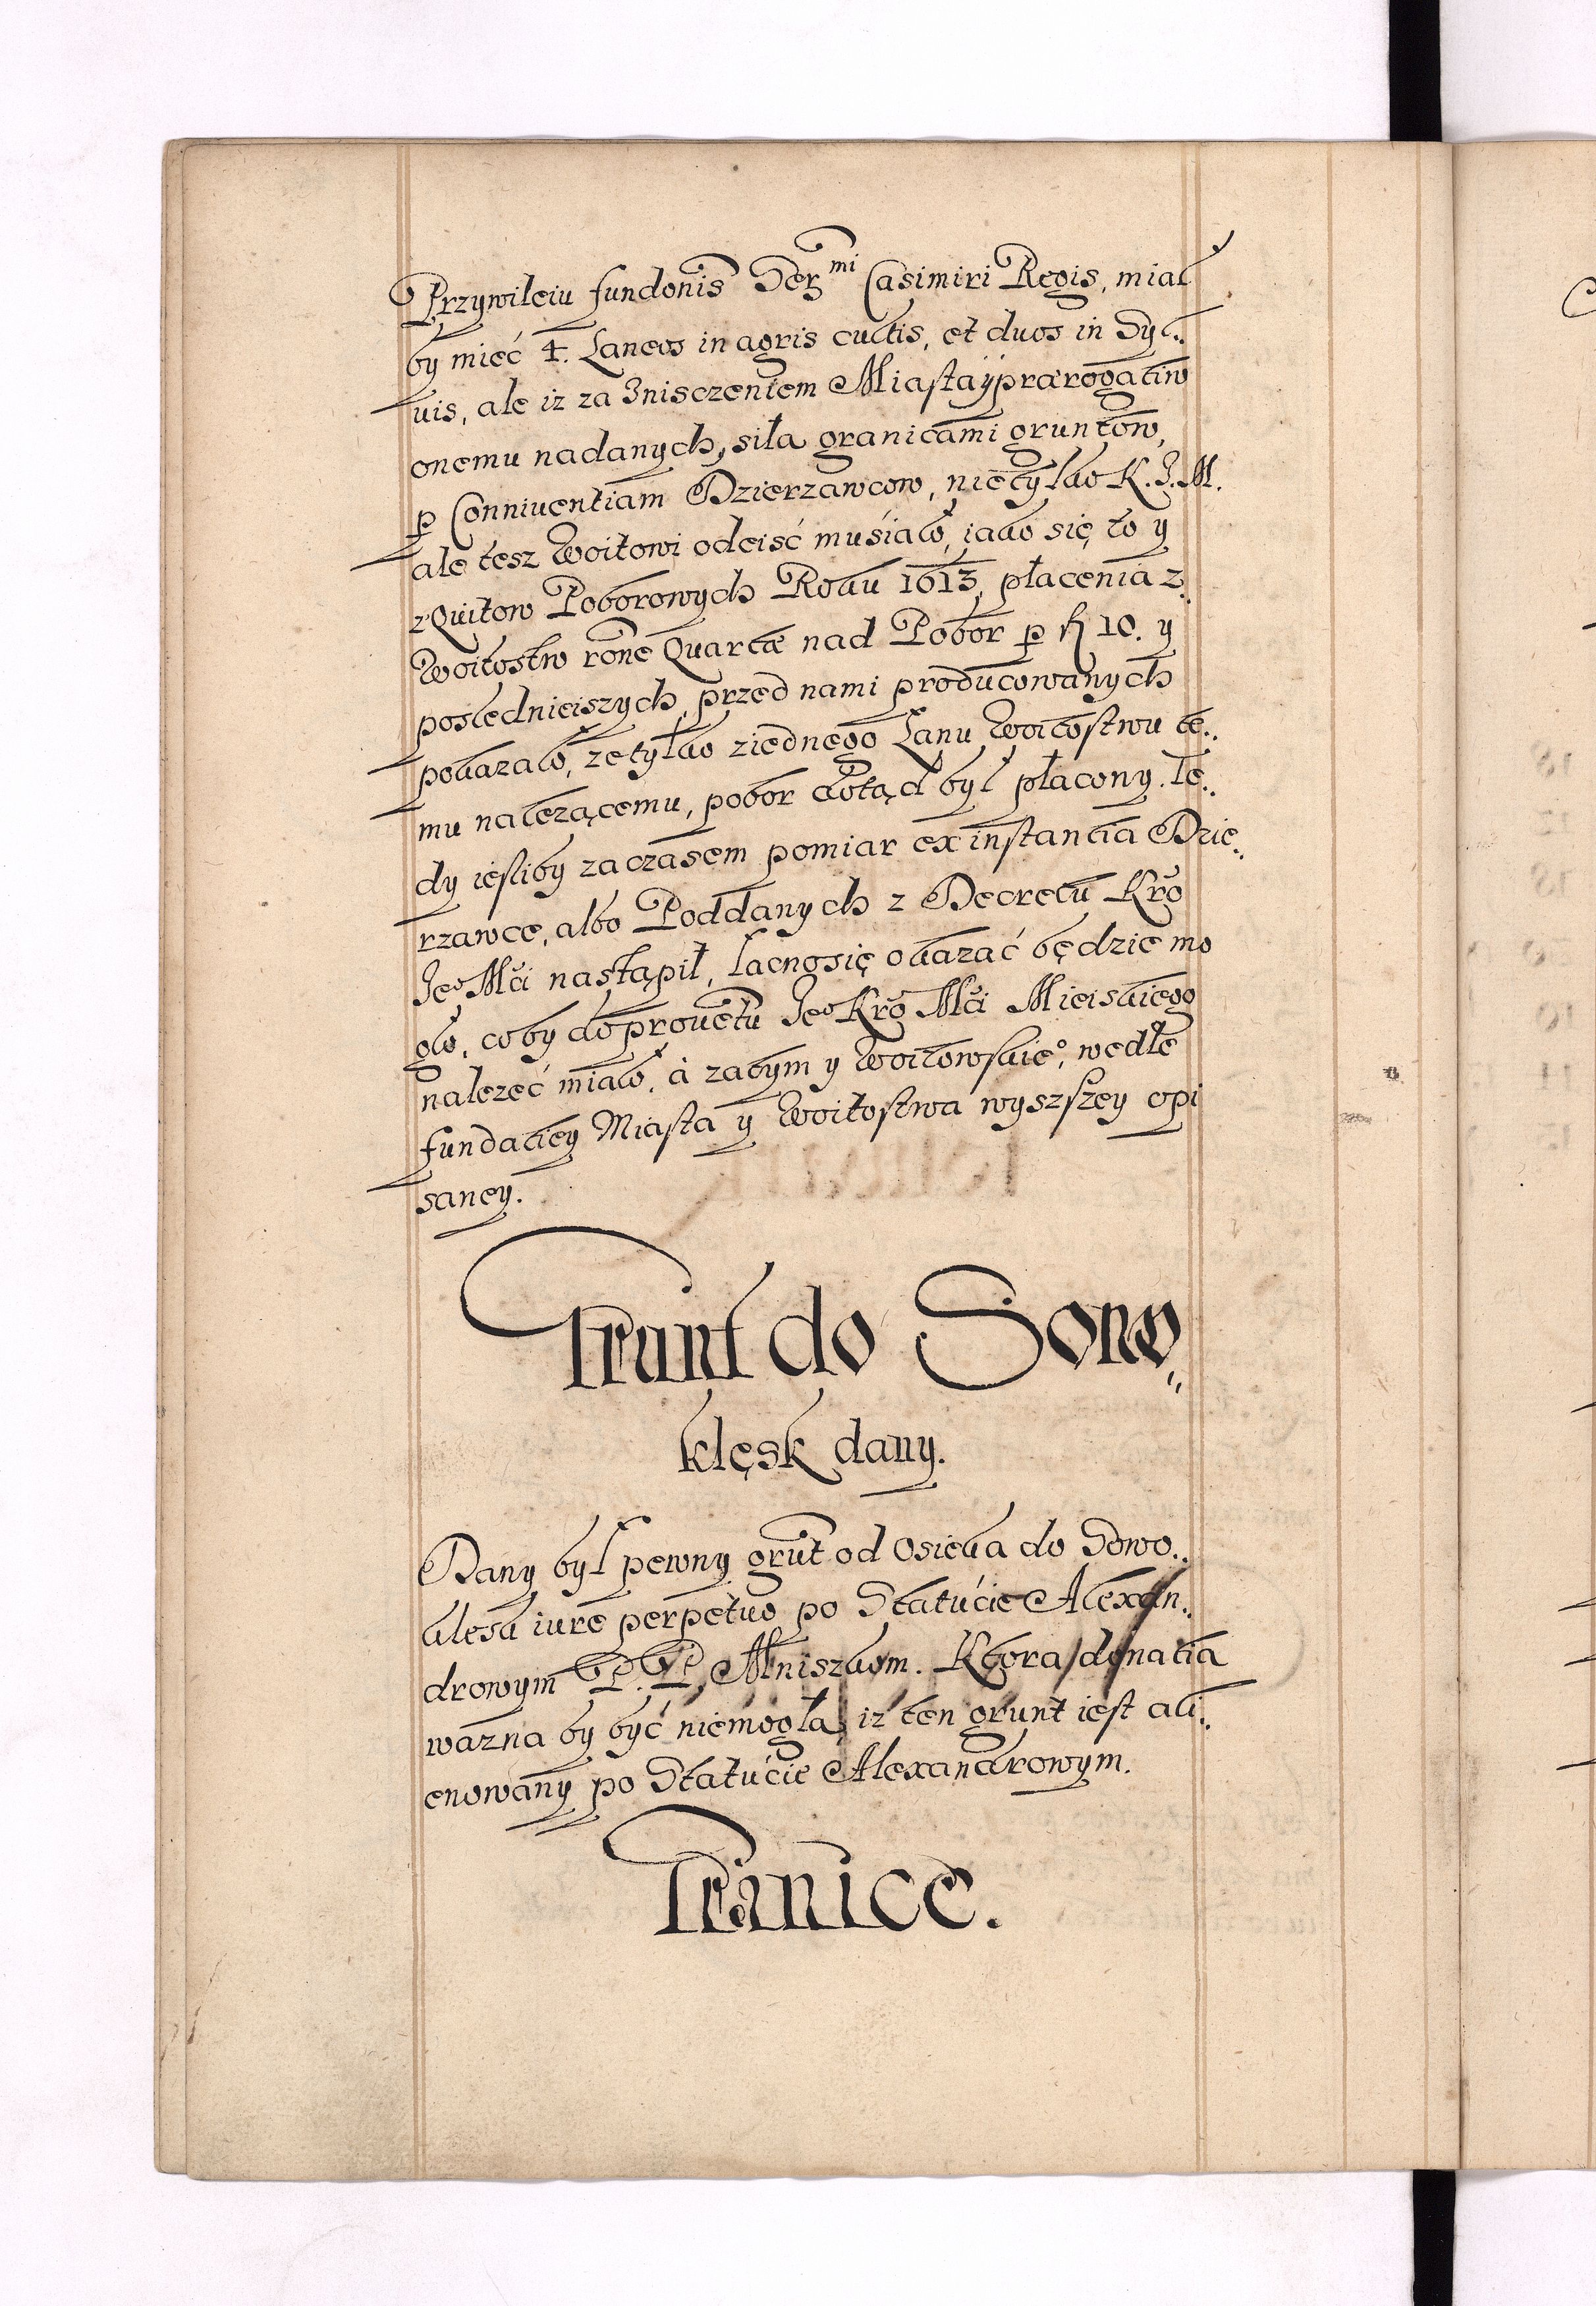 Przywileiu fundonis Ser^mi Casimiri Regis, miał
by mieć 4. Laneos in agris cultis, et duos in Syl..
uis, ale iz za Znisczeniem Miasta y prærogatiw
onemu nadanych, siła granicami gruntow,
p Conniuentiam Dzierzawcow, nietylko K. J. M.
ale tesz Woitowi odeisć musiało, iako się to y
z Quitow Poborowych Roku 1613, płacenia z
Woitostw rone Quartæ nad Pobor p fl 10. y
poslednieiszych, przed nami producowanych
pokazało, ze tylko ziednego Łanu Woitostwu te..
mu nalezącemu, pobor dotąd był płacony. Te..
dy iesliby za czasem pomiar ex instantia Dzie..
rzawce, albo Poddanych z Decretu Kro
Jeo Mci nastąpił, łacno się okazać będzie mo
gło, coby do prouentu Jeo Kro Mci Mieiskiego
nalezeć miało, à zatym y Woitowskieo, wedle
fundatiey Miasta y Woitostwa wyszszey opi
saney.
Grunt do Sowo„
klęsk dany.
Dany był pewny grut od Osieka do Sowo..
klesk iure perpetuo po Statucie Alexan..
drowym P. P. Mniszkom. Ktora donatia
wazna by być niemogła, iz ten grunt iest ali..
enowany po Statucie Alexandrowym.
Granice.